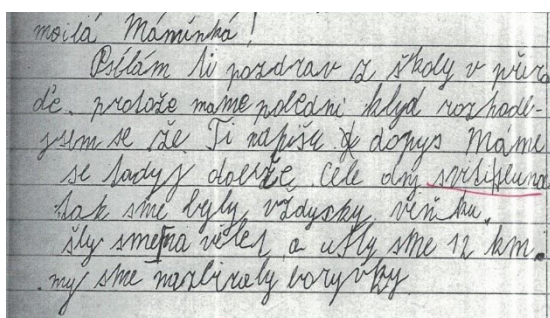 moilá Máminká!
Psílám ti pozdrav z školy v příro
dě. protože mame poledni klyd rozhodl-
jsem se že Ti napíšu dopys Máme
se tady dobře. Celé dny svítisluno
tak sme byly vždycky venku.
šly sme na vélet a ušly sme 12 km.
my sme nazbiraly boryvky